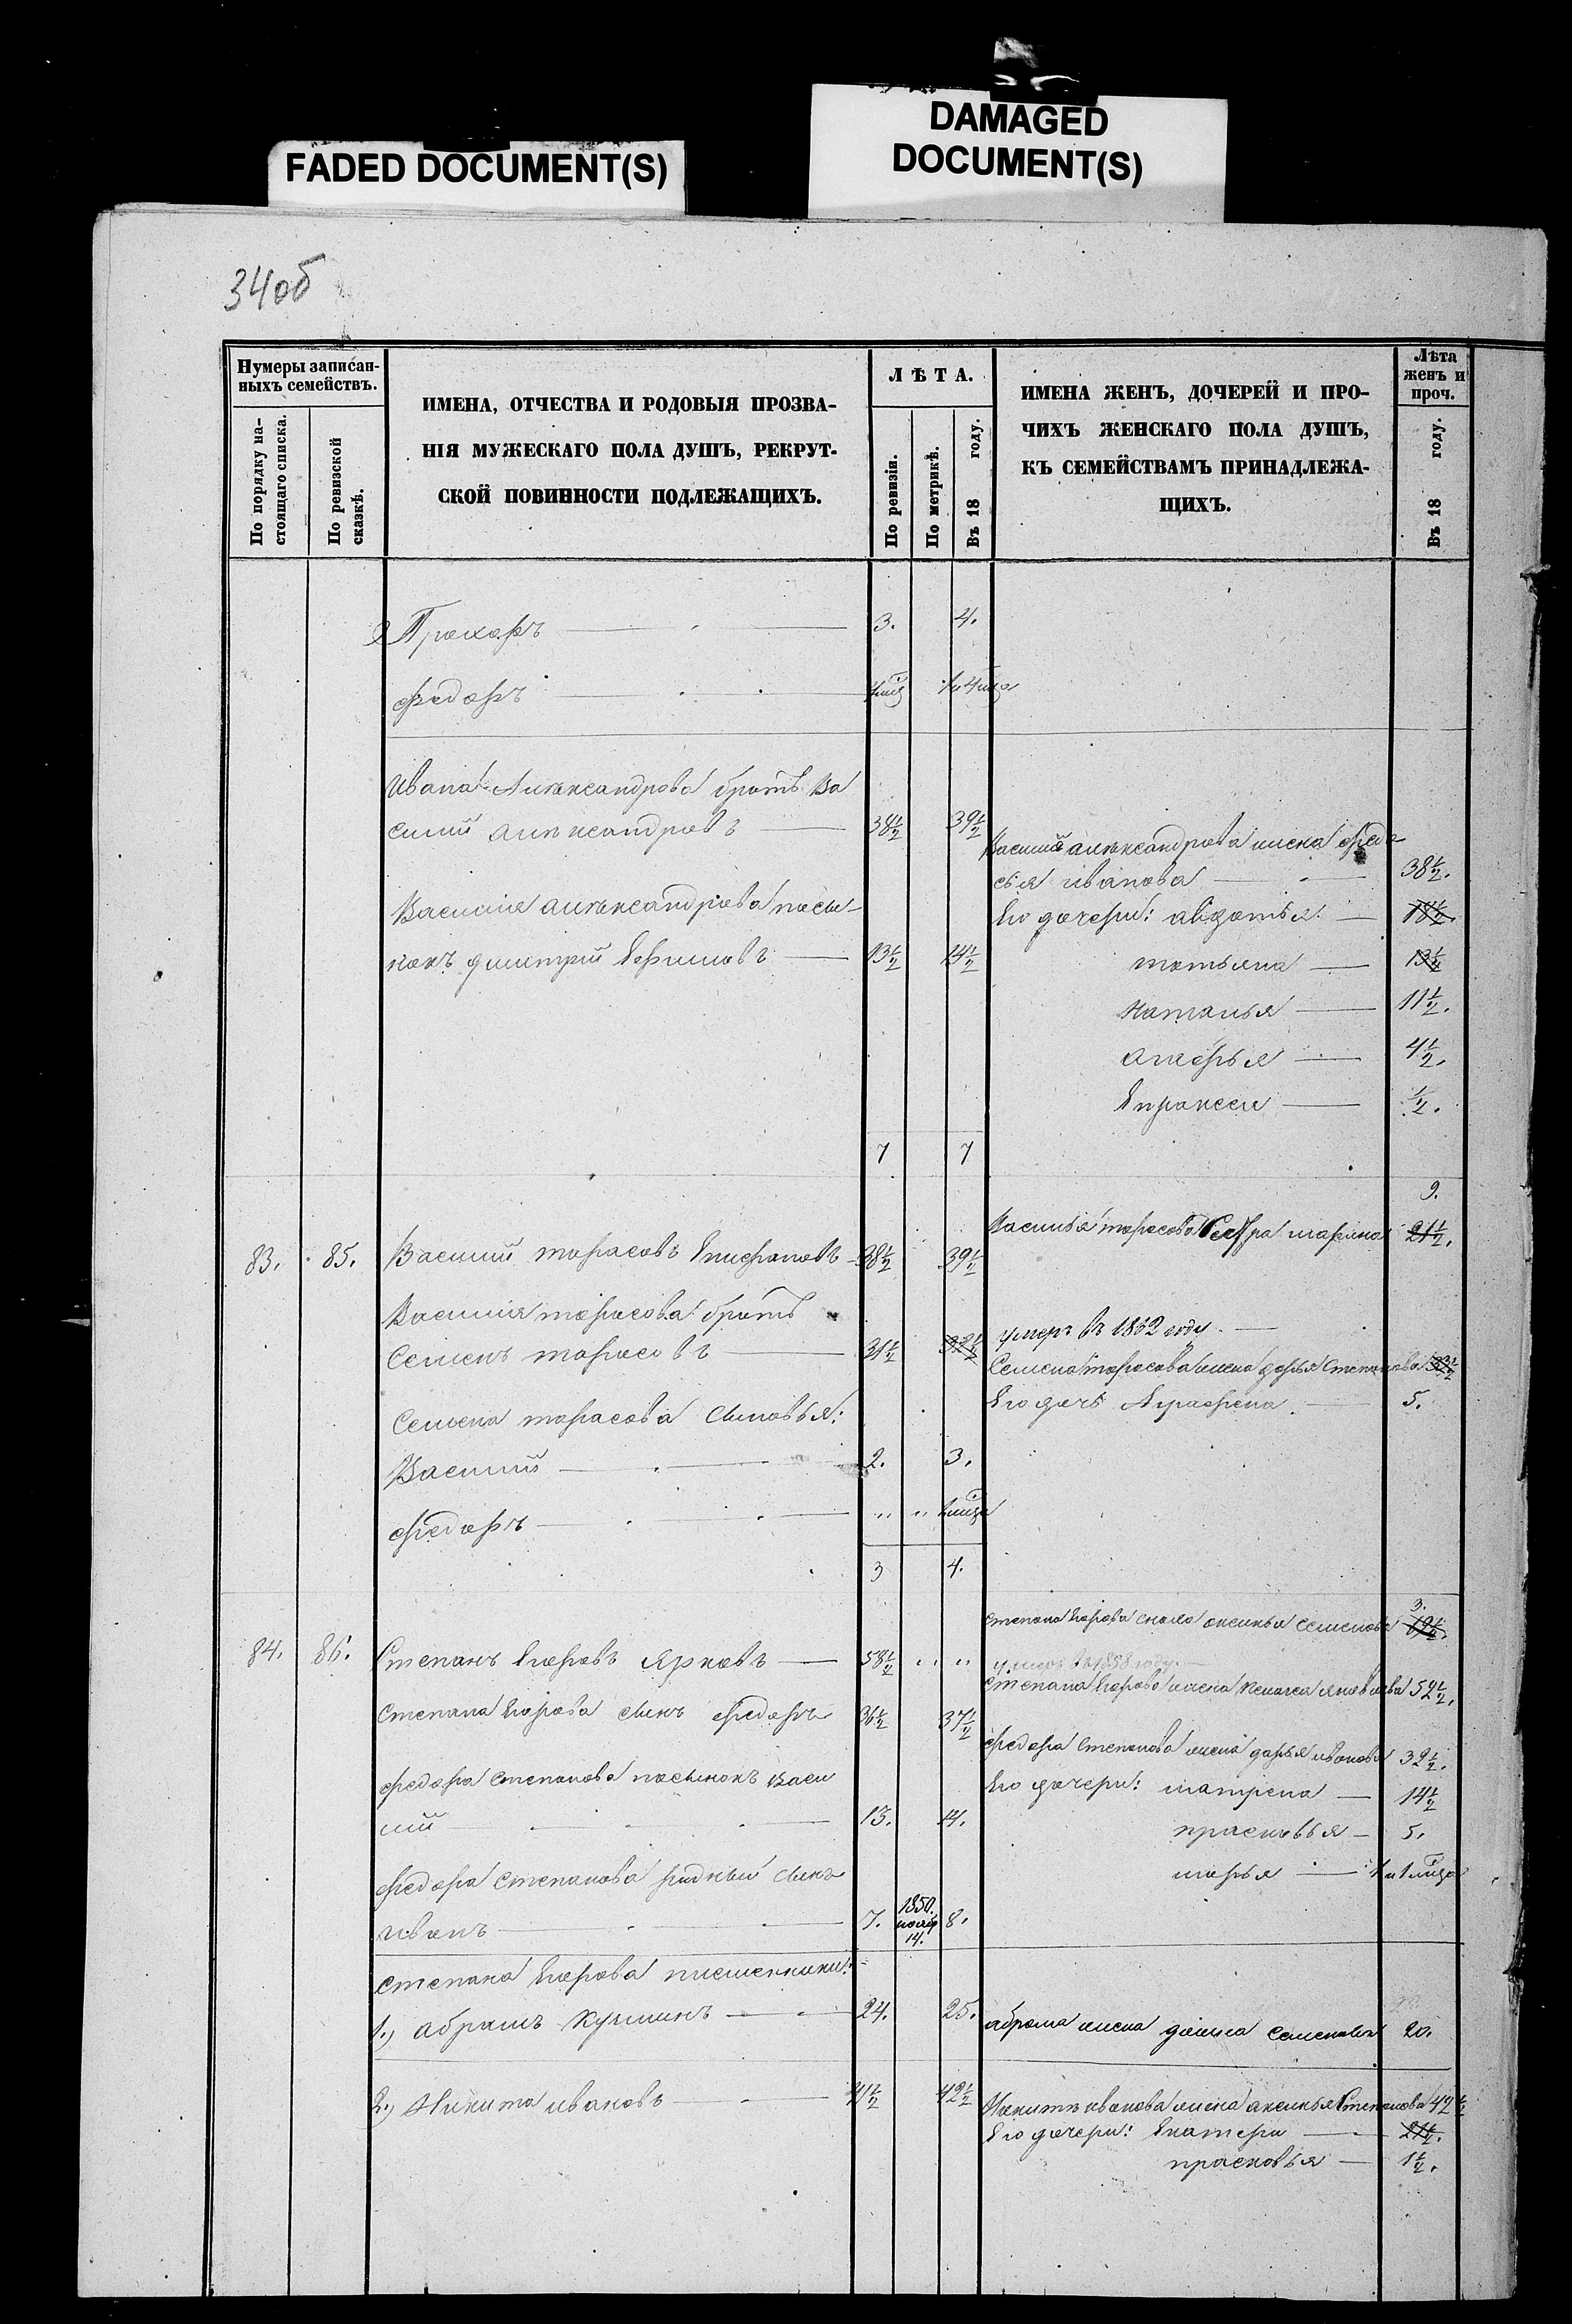 FADED DOCUMENT(S)
DAMAGED
DOCUMENT(S)
34об
Нумеры записан-
ныхъ семействъ.
По порядку на-
стоящаго списка.
По ревизской
сказкѣ.
ИМЕНА, ОТЧЕСТВА И РОДОВЫЯ ПРОЗВА-
НІЯ МУЖЕСКАГО ПОЛА ДУШЪ, РЕКРУТ-
СКОЙ ПОВИННОСТИ ПОДЛЕЖАЩИХЪ.
ЛѢТА.
По ревизіи.
По метрикѣ.
Въ 18 году.
ИМЕНА ЖЕНЪ, ДОЧЕРЕЙ И ПРО-
ЧИХЪ ЖЕНСКАГО ПОЛА ДУШЪ,
КЪ СЕМЕЙСТВАМЪ ПРИНАДЛЕЖА-
ЩИХЪ.
Лѣта
женъ и
проч.
Въ 18 году.
Прохоръ 3. 4.
федоръ
Ивана Александрова братъ Ва
силий александровъ 38½ 39½
Василия александрова жена федо
сья иванова 38½.
Василия александрова посы-
нокъ димитрий Ефимовъ 13½ 14½
Его дочери: авдотья 18½.
татьяна 13½
наталья 11½.
4½.
Епраксея ½.
7 7
9.
83. 85. Василий тарасовъ Епифановъ 38½ 39½
Василья тарасова Сестра марина 21½.
Василия тарасова братъ
Семенъ тарасовъ 31½ 32½
умеръ въ 1832 году.
Семена тарасова жена дарья Степанова
Его дочь Аграфена 5.
Семена тарасова сыновья:
Василий 2. 3.
федоръ " "
3 4.
3.
84. 86. Степанъ Егоровъ Ярковъ 58½ " "
Степана Егорова сноха аксинья семенова
умеръ в 1858 году.
Степана Егорова жена яковлева 52½.
Степана Егорова сынъ федоръ 36½ 37½
федора степанова жена дарья иванова 32½.
федора степанова пасынокъ васи
лий 13. 14.
Его дочери: матрена 14½
прасковья 5.
марья
федора степанова родный сынъ
иванъ 7. 1850. 14. 8.
степана Егорова племенники:
1., абрамъ кузминъ 24. 25.
абрама жена семенова 20.
2., Никита ивановъ 41½ 42½
Никиты иванова жена аксинья Степанова 42½
Его дочери: Екатери 21½.
прасковья 1½.